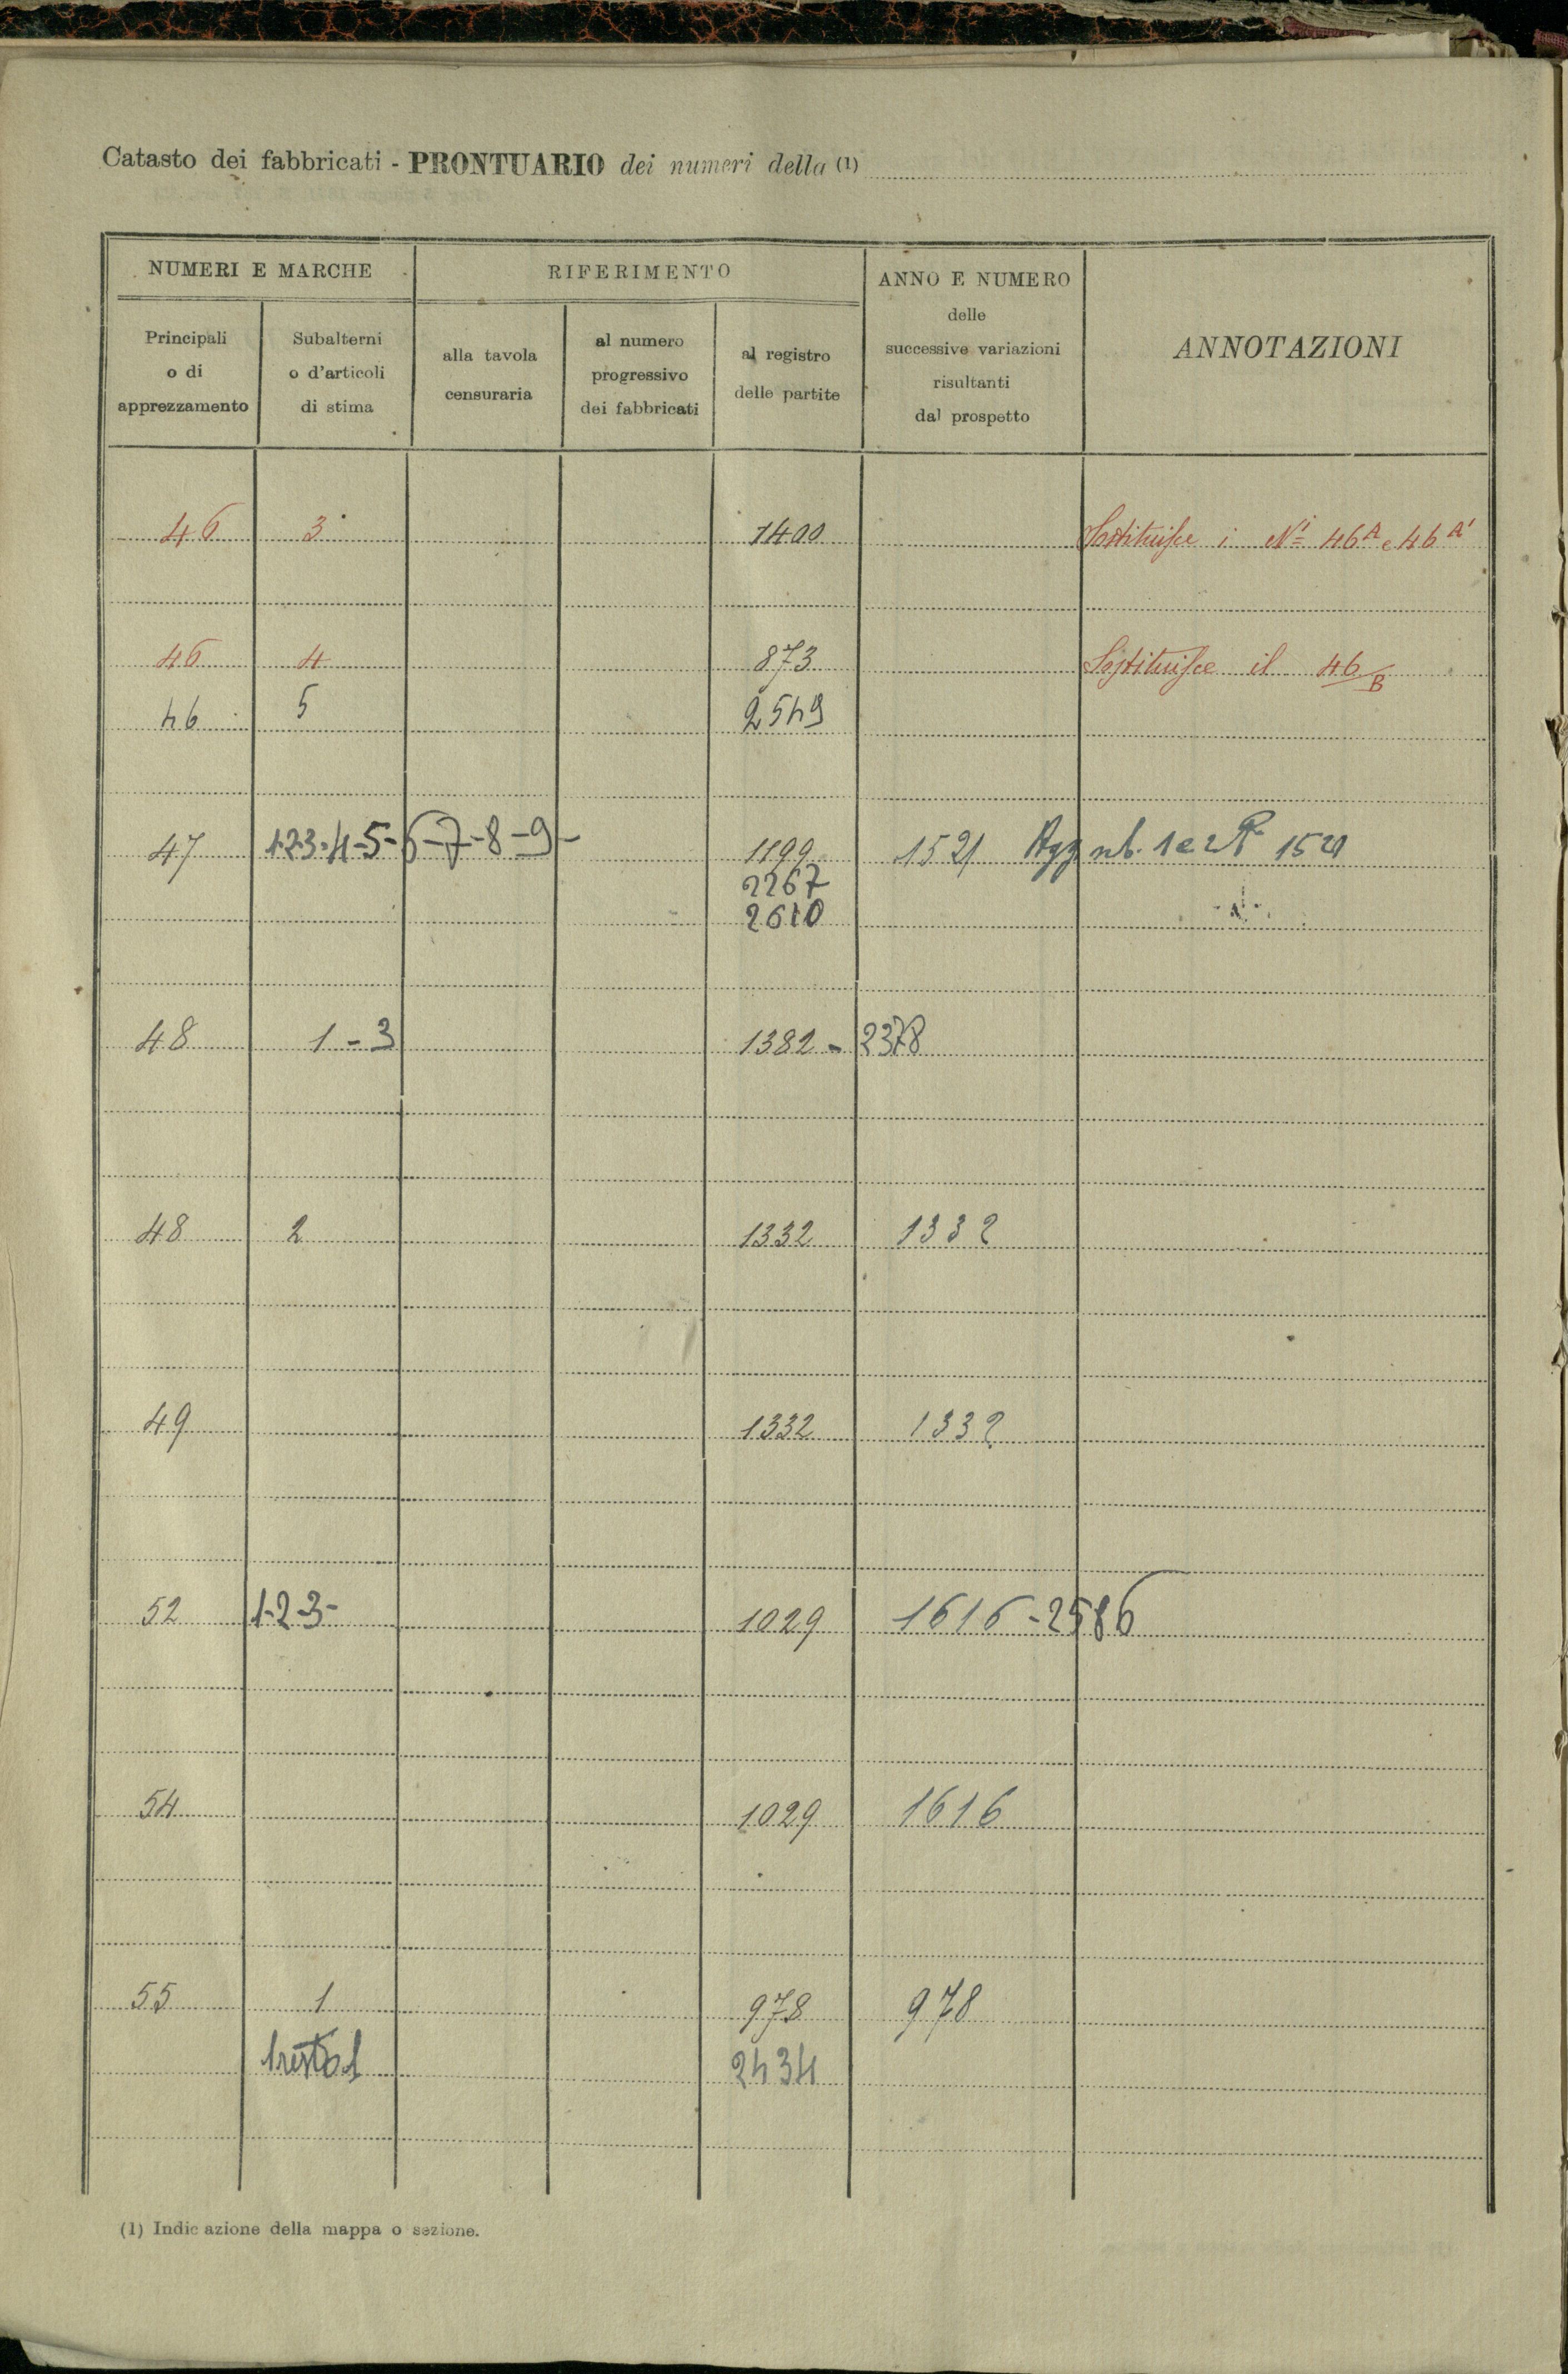 Catasto dei fabbricati - PRONTUARIO dei numeri della (1)
NUMERI E MARCHE
RIFERIMENTO
ANNO E NUMERO
delle
successive variazioni
risultanti
dal prospetto
ANNOTAZIONI
Principali
o di
apprezzamento
Subalterni
o d'articoli
di stima
alla tavola
censuraria
al numero
progressivo
dei fabbricati
al registro
delle partite
46 3 1400 Sostituisce i Ni 46 A e 46 A'
46 4 873 Sostituisce il 46/B
46 5 2549
47 1-2-3-4-5-6-7-8-9- 1199 1521 Agg nb. 1 e 2 P 1521
2267
2610
48 1-3 1382 - 2378
48 2 1332 1332
49 1332 1332
52 1-2-3- 1029 1616-2586
54 1029 1616
55 1 978 978
2434
(1) Indicazione della mappa o sezione.